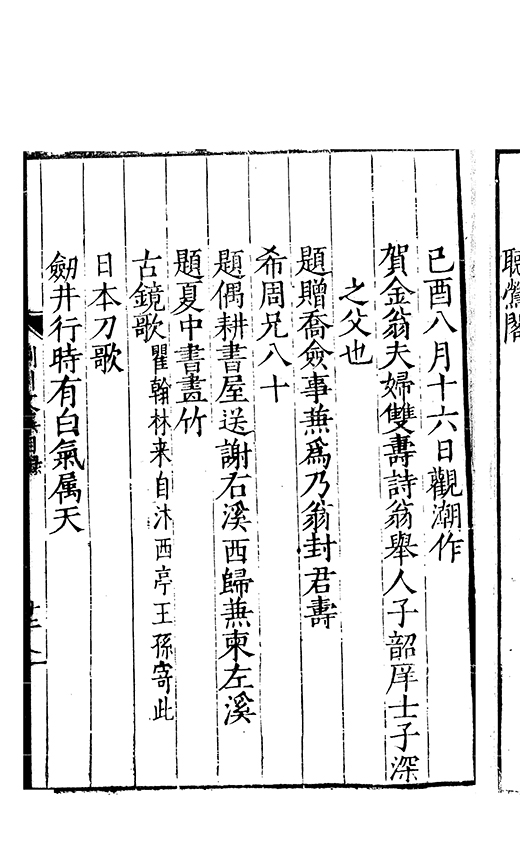 聽鶯閣
己酉八月十六日觀潮作
賀金翁夫婦雙壽詩翁舉人子韶庠士子深
之父也
題贈喬僉事兼爲乃翁封君壽
希周兄八十
題偶耕書屋送謝石溪西歸兼柬左溪
題夏中書畫竹
古鏡歌瞿翰林来自沐西亭王孫寄此
日本刀歌
劒井行時有白氣属天